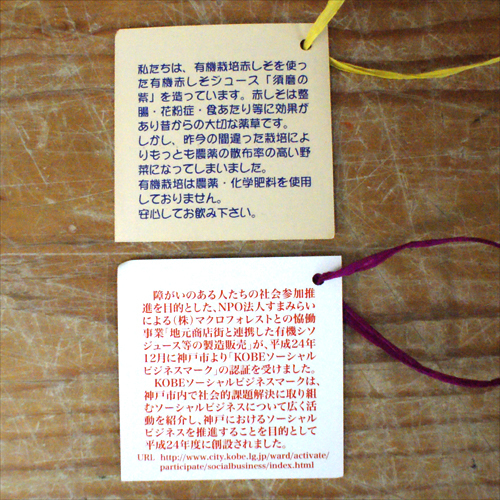 私たちは、有機栽培赤しそを使っ
た有機赤しそジュース「須磨の
紫」を造っています。赤しそは整
腸・花粉症・食あたり等に効果が
あり昔からの大切な薬草です。
しかし、昨今の間違った栽培によ
りもっとも農薬の散布率の高い野
菜になってしまいました。
有機栽培は農薬・化学肥料を使用
しておりません。
安心してお飲み下さい。
障がいのある人たちの社会参加推
進を目的とした、NPO法人すまみらい
による(株)マクロフォレストとの恊働
事業「地元商店街と連携した有機シソ
ジュース等の製造販売」が、平成24年
12月に神戸市より「KOBEソーシャル
ビジネスマーク」の認証を受けました。
KOBEソーシャルビジネスマークは、
神戸市内で社会的課題解決に取り組
むソーシャルビジネスについて広く活
動を紹介し、神戸におけるソーシャル
ビジネスを推進することを目的として
平成24年度に創設されました。
URL http://www.city.kobe.lg.jp/ward/activate/
participate/socialbusiness/index.html